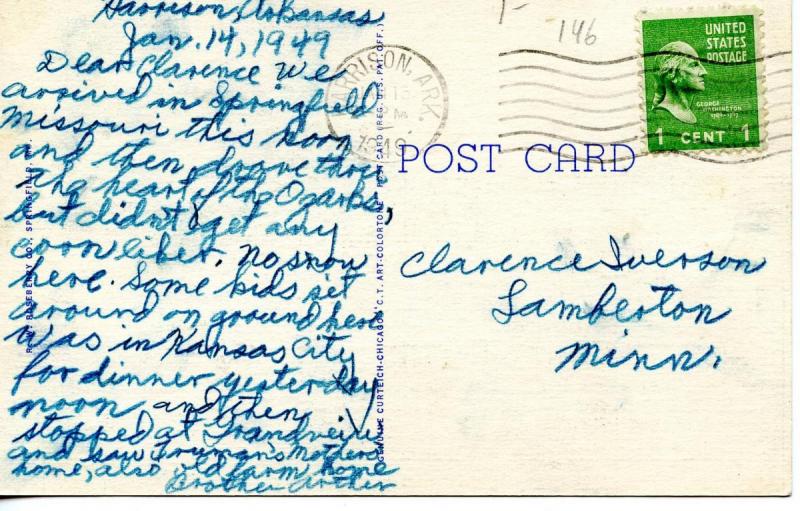 Harrison, Arkansas
Jan. 14, 1949
Dear Clarence We
arrived in Springfield
Missouri this morn
and then drove thru
the heart of the Ozarks,
but didn't get any
corn liker. No snow
here. Some kids set
around on ground here
was in Kansas City
for dinner yesterday
noon and then
stopped at Grandveiw
and saw Truman's Mothers
home, also old farm home
Brother Arther
146
HARRISON, ARK.
1949
UNITED
STATES
POSTAGE
GEORGE
WASHINGTON
1 CENT 1
POST CARD
Clarence Iverson
Lamberton
Minn.
GENUINE CURTEICH-CHICAGO "C.T. ART-COLORTONE" POST CARD (REG. U.S. PAT. OFF.)
ROSEBERRY CO., SPRINGFIELD,